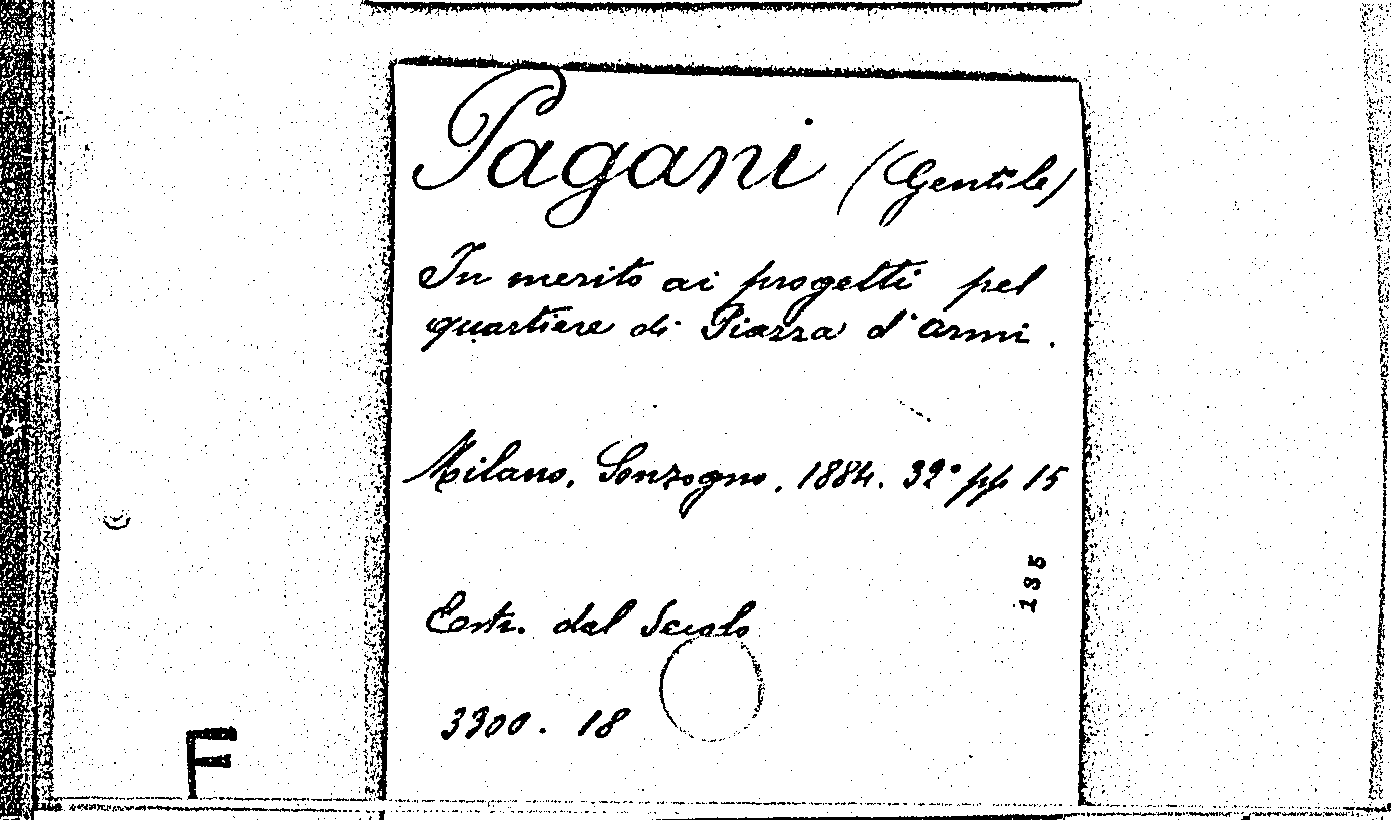 Pagani (Gentile)
In merito ai progetti pel
quartiere di Piazza d'armi.
Milano, Sonzogno, 1884. 32° pp 15
135
Estr. dal Secolo
3300. 18
F